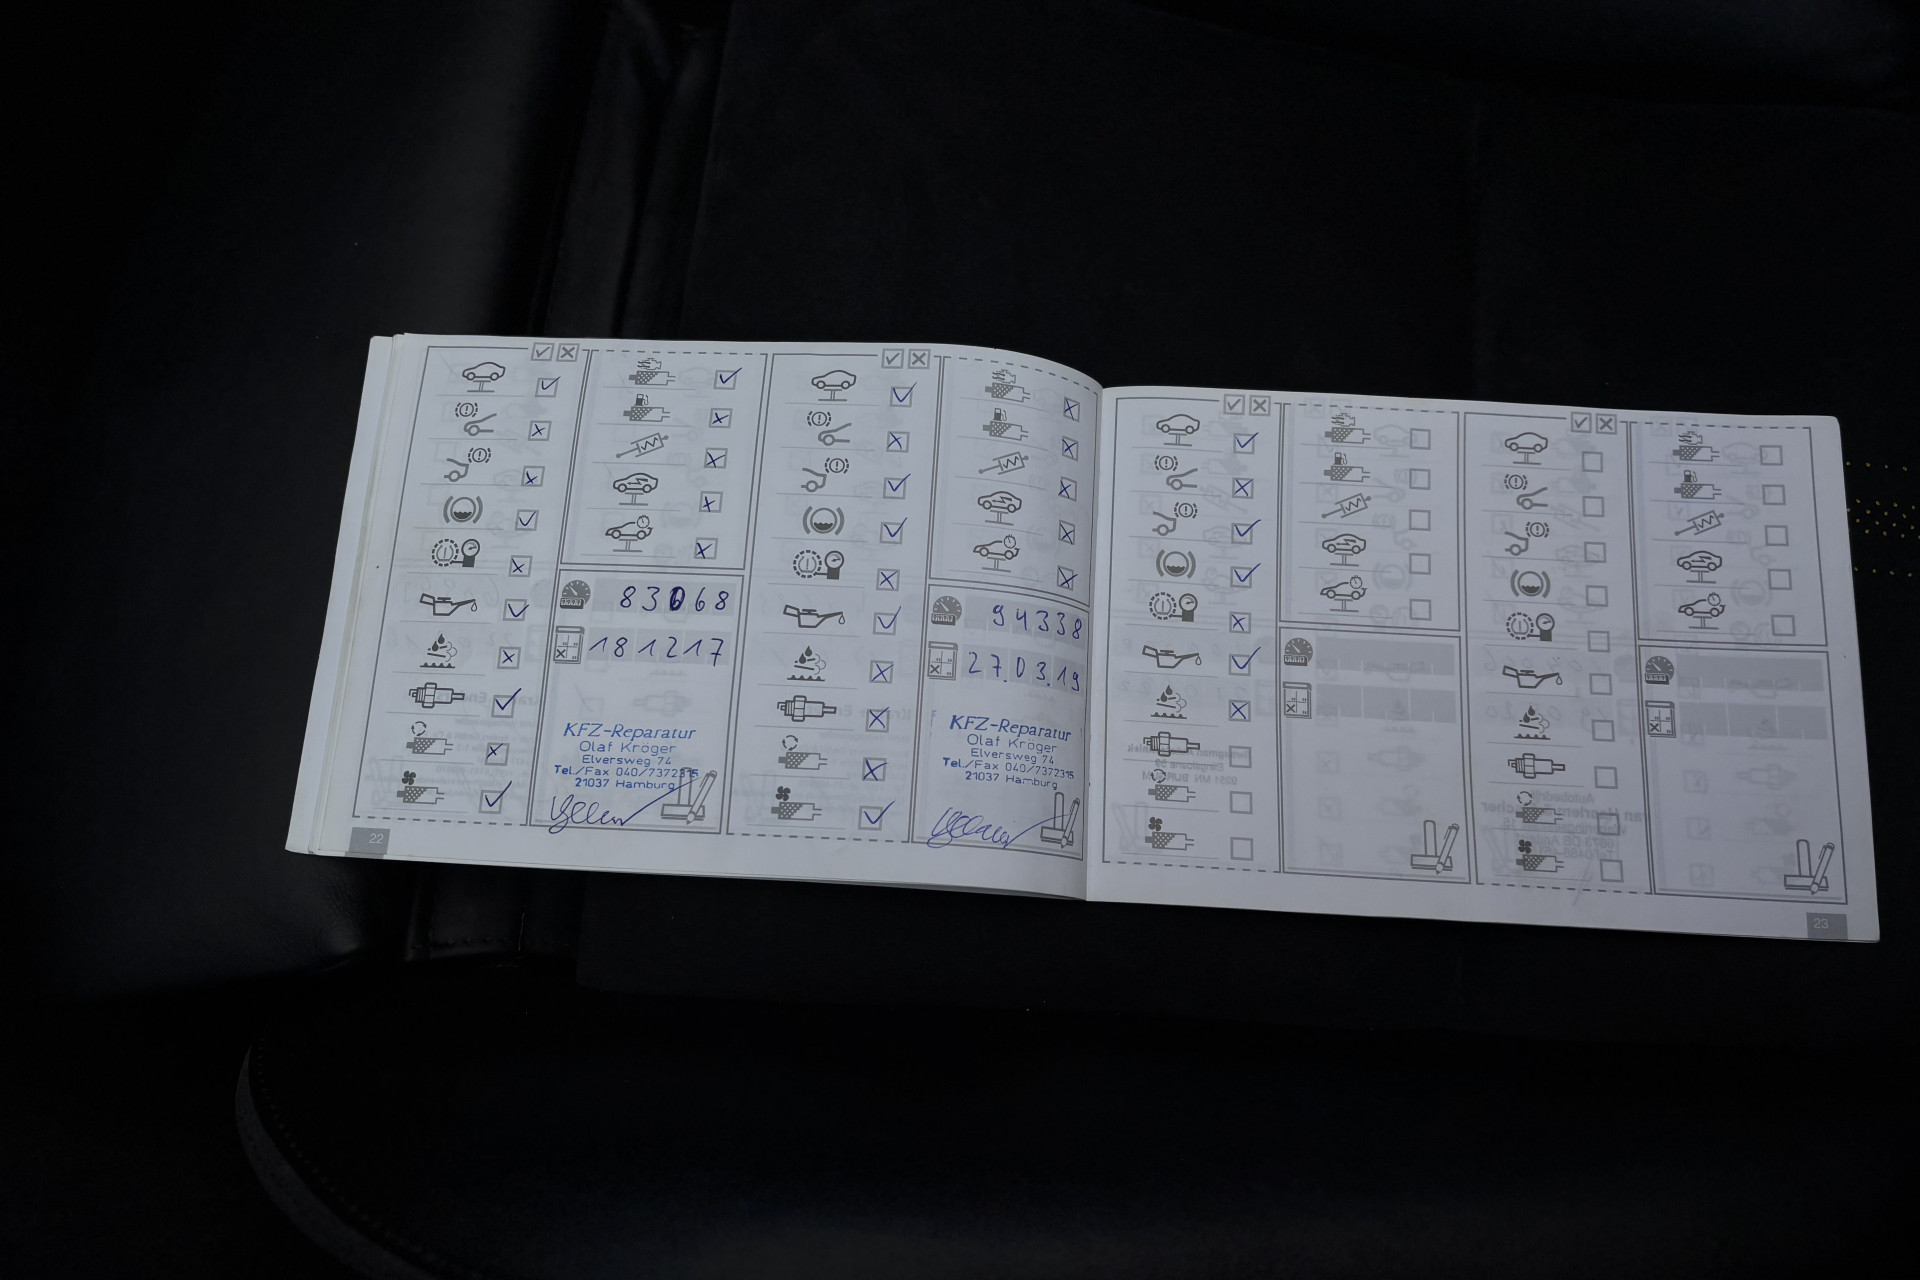 83068
181217
KFZ-Reparatur
Olaf Kröger
Elversweg 74
Tel./Fax 040/7372315
21037 Hamburg
22
94338
27.03.19
KFZ-Reparatur
Olaf Kröger
Elversweg 74
Tel./Fax 040/7372315
21037 Hamburg
23